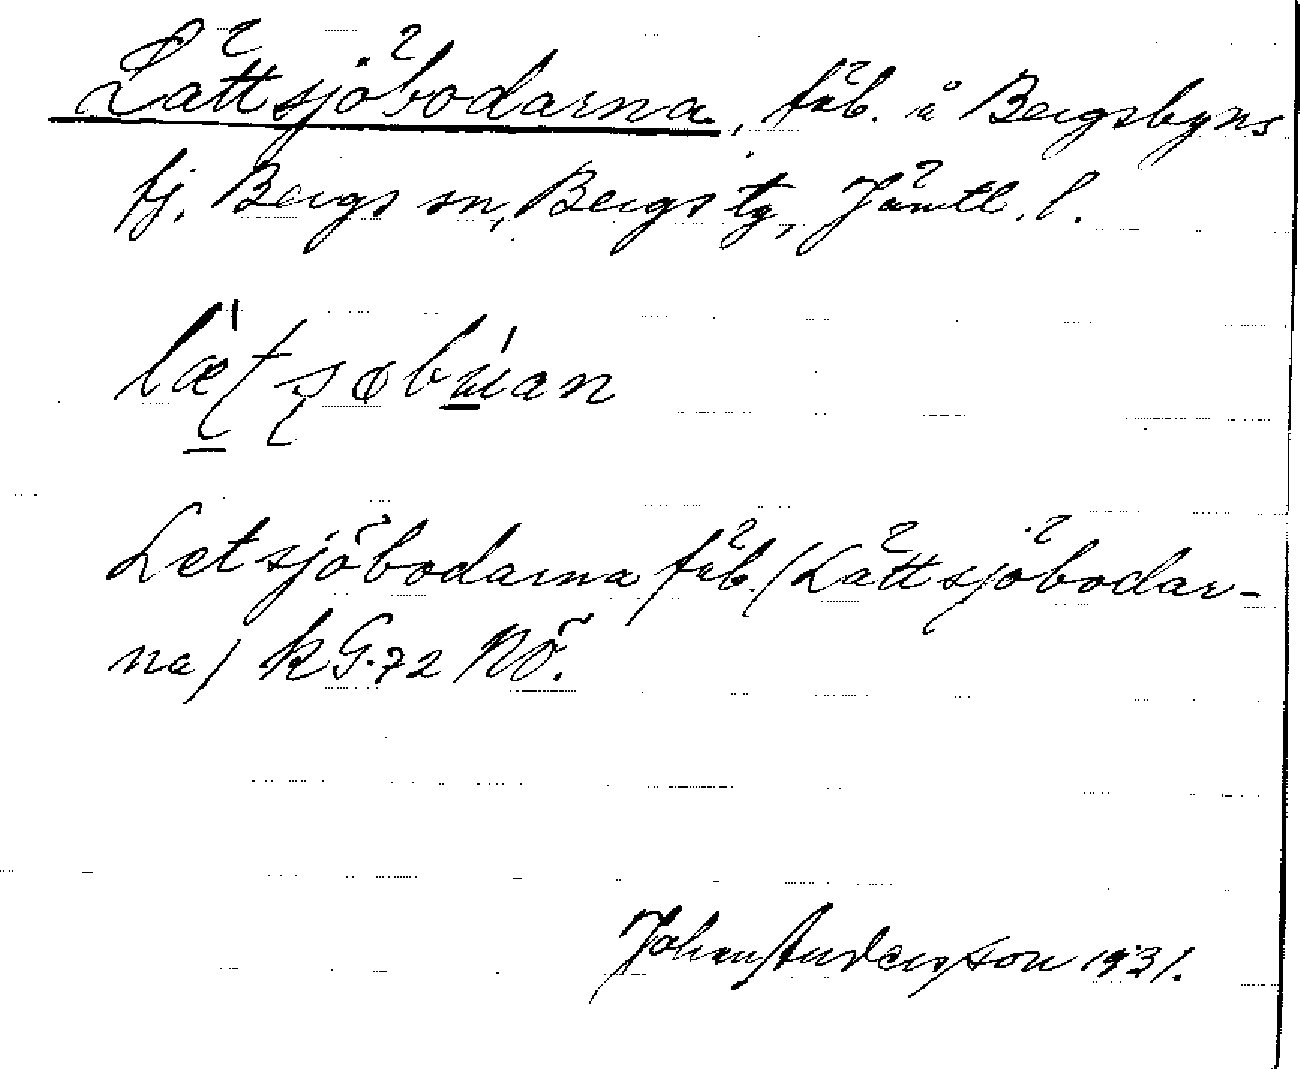 Lättsjöbodarna, fäb. å Bergsbyns
fj. Bergs sn, Bergs tg, Jämtl. l.
læt søbu̲an
Letsjöbodarna fäb. (Lättsjöbodar-
na) kG. 72 NÖ.
Johan Andersson 1931.